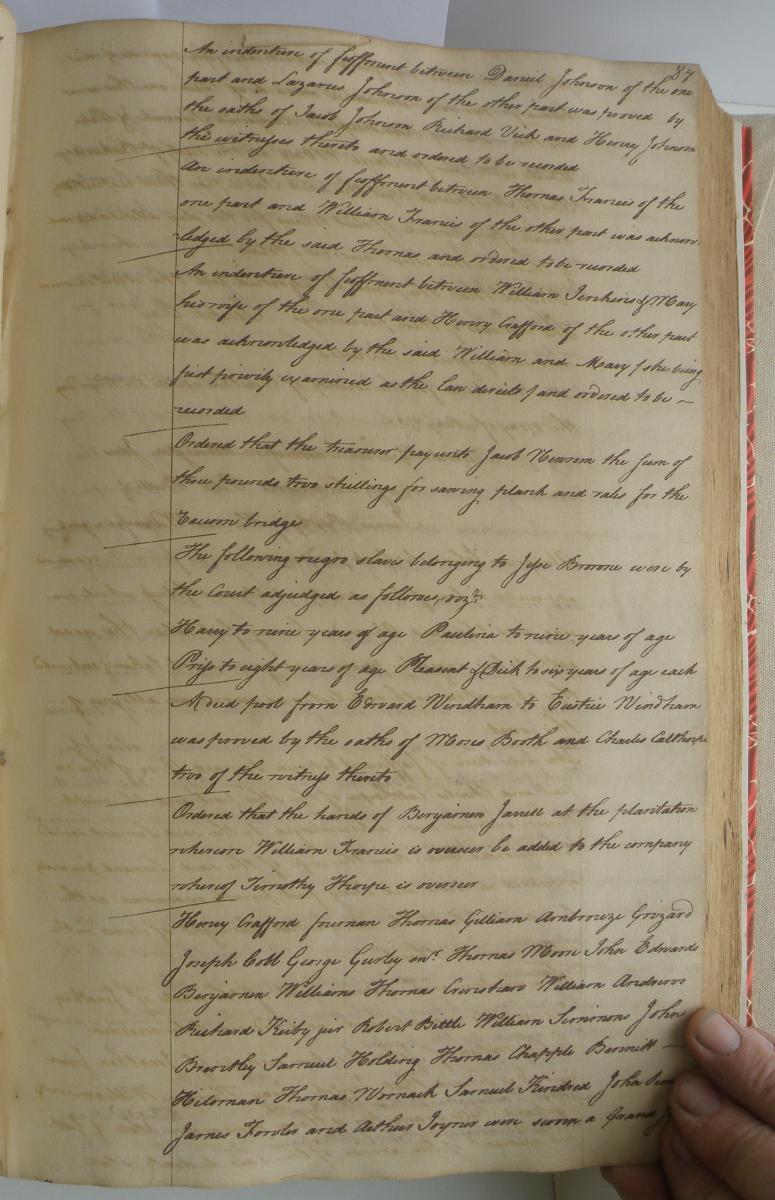 87
An indenture of feoffment between Daniel Johnson of the one
part and Lazarus Johnson of the other part was proved by
the oaths of Jacob Johnson Richard Vick and Henry Johnson
the witnesses thereto and ordered to be recorded
An indenture of feoffment between Thomas Francis of the
one part and William Francis of the other part was acknow-
ledged by the said Thomas and ordered to be recorded
An indenture of feoffment between William Jenkins & Mary
his wife of the one part and Henry Crafford of the other part
was acknowledged by the said William and Mary (she being
first privily examined as the law directs) and ordered to be
recorded
Ordered that the treasurer pay unto Jacob Newsom the sum of
three pounds two shillings for sawing plank and rales for the
bridge
The following negro slaves belonging to Jesse Browne were by
the Court adjudged as follows, vizt.
Harry to nine years of age Paulina to nine years of age
Priss to eight years of age Pleasant & Dick to six years of age each
A deed pool from Edward Windham to Windham
was proved by the oaths of Moses Booth and Charles Calthorpe
two of the witness thereto
Ordered that the hands of Benjamen Jarrell at the plantation
whereon William Francis is overseer be added to the company
whereof Timothy Thorpe is overseer
Henry Crafford foreman Thomas Gilliam Ambrouze Grizard
Joseph Cobb George Gurley snr. Thomas Moore John Edwards
Benjamen Williams Thomas Crenshaw William Andrews
Richard Kirby jur Robert Bittle William Simmons John
Brantley Samuel Holding Thomas Chapple Bennitt
Hilsman Thomas Womack Samuel Kindred John
James Fowler and Arthur Joyner were sworn a Grand